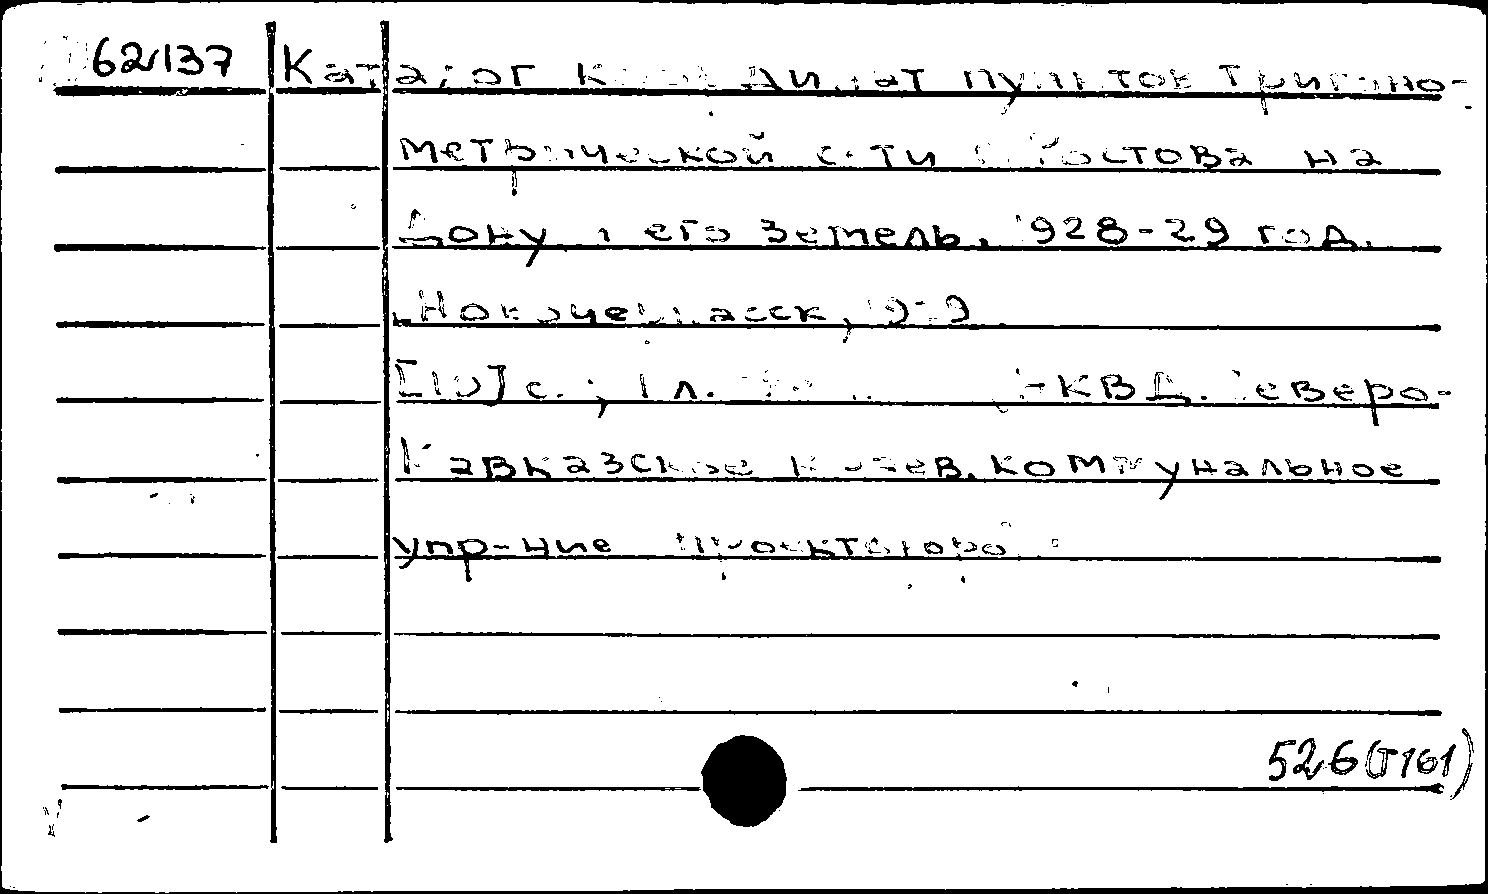 62/137 Каталог координат пунктов тригоно-
метрической сети г. Ростова на
Дону и его земель, 1928-29 год.
Новочеркасск, 1929
[10] с.; 1 л. НКВД. Северо-
Кавказское краев. коммунальное
упр-ние
526(Т161)